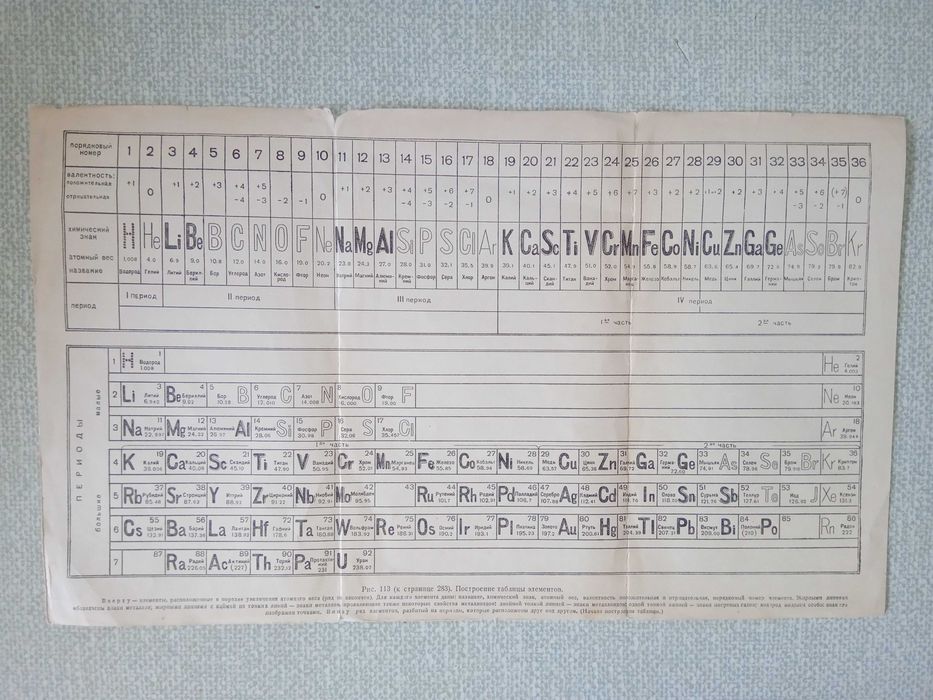 порядковый номер 1 2 3 4 5 6 7 8 9 10 11 12 13 14 15 16 17 18 19 20 21 22 23 24 25 26 27 28 29 30 31 32 33 34 35 36
валентность:
положительная +1 0 +1 +2 +3 +4 +5 0 +1 +2 +3 +4 +5 +6 +7 0 +1 +2 +3 +4 +5 +6 +7 +3 +2 +2 +1+2 +2 +3 +4 +5 +6 (+7) 0
отрицательная −4 −3 −2 −1 −4 −3 −2 −1 −3 −2 −1
химический знак H He Li Be B C N O F Ne Na Mg Al Si P S Cl Ar K Ca Sc Ti V Cr Mn Fe Co Ni Cu Zn Ga Ge As Se Br Kr
атомный вес 1,008 4.0 6.9 9.0 10.8 12.0 14.0 16.0 19.0 20.2 23.0 24.3 27.0 28.0 31.0 32.1 35.5 39.9 39.1 40.1 45.1 47.9 51.0 52.0 54.9 55.8 58.9 58.7 63.6 65.4 69.7 72.6 74.9 79.0 79.9
название Водород Гелий Литий Берил-лий Бор Углерод Азот Кисло-род Фтор Неон Натрий Магний Алюми-ний Крем-ний Фосфор Сера Хлор Аргон Калий Каль-ций Скан-дий Титан Вана-дий Хром Марга-нец Железо Кобальт Никель Медь Цинк Галлий Герма-ний Мышьяк Селен Бром Крип-тон
период I период II период III период IV период
1ая часть 2ая часть
ПЕРИОДЫ
малые
большие
1 H 1 Водород 1.008 He 2 Гелий 4.003
2 Li 3 Литий 6.940 Be 4 Бериллий 9.02 5 Бор B 6 Углерод C 7 Азот 14.008 N 8 Кислород O 9 Фтор 19.00 F Ne 10 Неон 20.183
3 Na 11 Натрий 22.997 Mg 12 Магний 24.32 13 Алюминий 26.97 Al 14 Кремний 28.06 Si 15 Фосфор 30.98 P 16 Сера 32.06 S 17 Хлор 35.457 Cl Ar 18 Аргон 39.944
1ая часть 2ая часть
4 K 19 Калий 39.096 Ca 20 Кальций 40.08 Sc 21 Скандий 45.10 Ti 22 Титан 47.90 V 23 Ванадий 50.95 Cr 24 Хром 52.01 Mn 25 Марганец 54.93 Fe 26 Железо 55.85 Co 27 Кобальт 58.94 Ni 28 Никель 58.69 29 Медь 63.57 Cu 30 Цинк 65.38 Zn 31 Галлий 69.72 Ga 32 Герман. 72.60 Ge 33 Мышьяк 74.91 As 34 Селен Se 35 Бром Br Kr 36 Криптон 83.7
5 Rb 37 Рубидий 85.48 Sr 38 Стронций 87.63 Y 39 Иттрий Zr 40 Цирконий 91.22 Nb 41 Ниобий 92.91 Mo 42 Молибден 95.95 43 Ru 44 Рутений 101.7 Rh 45 Родий 102.91 Pd 46 Палладий 106.7 47 Серебро 107.88 Ag 48 Кадмий 112.41 Cd 49 Индий In 50 Олово Sn 51 Сурьма 121.76 Sb 52 Теллур Te 53 Иод J Xe 54 Ксенон 131.3
6 Cs 55 Цезий 132.91 Ba 56 Барий 137.36 La 57 Лантан 138.92 Hf 72 Гафний 178.6 Ta 73 Тантал 180.88 W 74 Вольфрам 183.92 Re 75 Рений 186.31 Os 76 Осмий 190.2 Ir 77 Иридий 193.1 Pt 78 Платина 79 Золото 197.2 Au 80 Ртуть 200.61 Hg 81 Таллий 204.39 Tl 82 Свинец 207.21 Pb 83 Висмут 209.00 Bi 84 Полоний (210) Po 85 Rn 86 Радон 222
7 87 Ra 88 Радий 226.05 Ac 89 Актиний (227) Th 90 Торий 232.12 Pa 91 Протактиний 231 U 92 Уран 238.07
Рис. 113 (к странице 283). Построение таблицы элементов.
Вверху — элементы, расположенные в порядке увеличения атомного веса (ряд